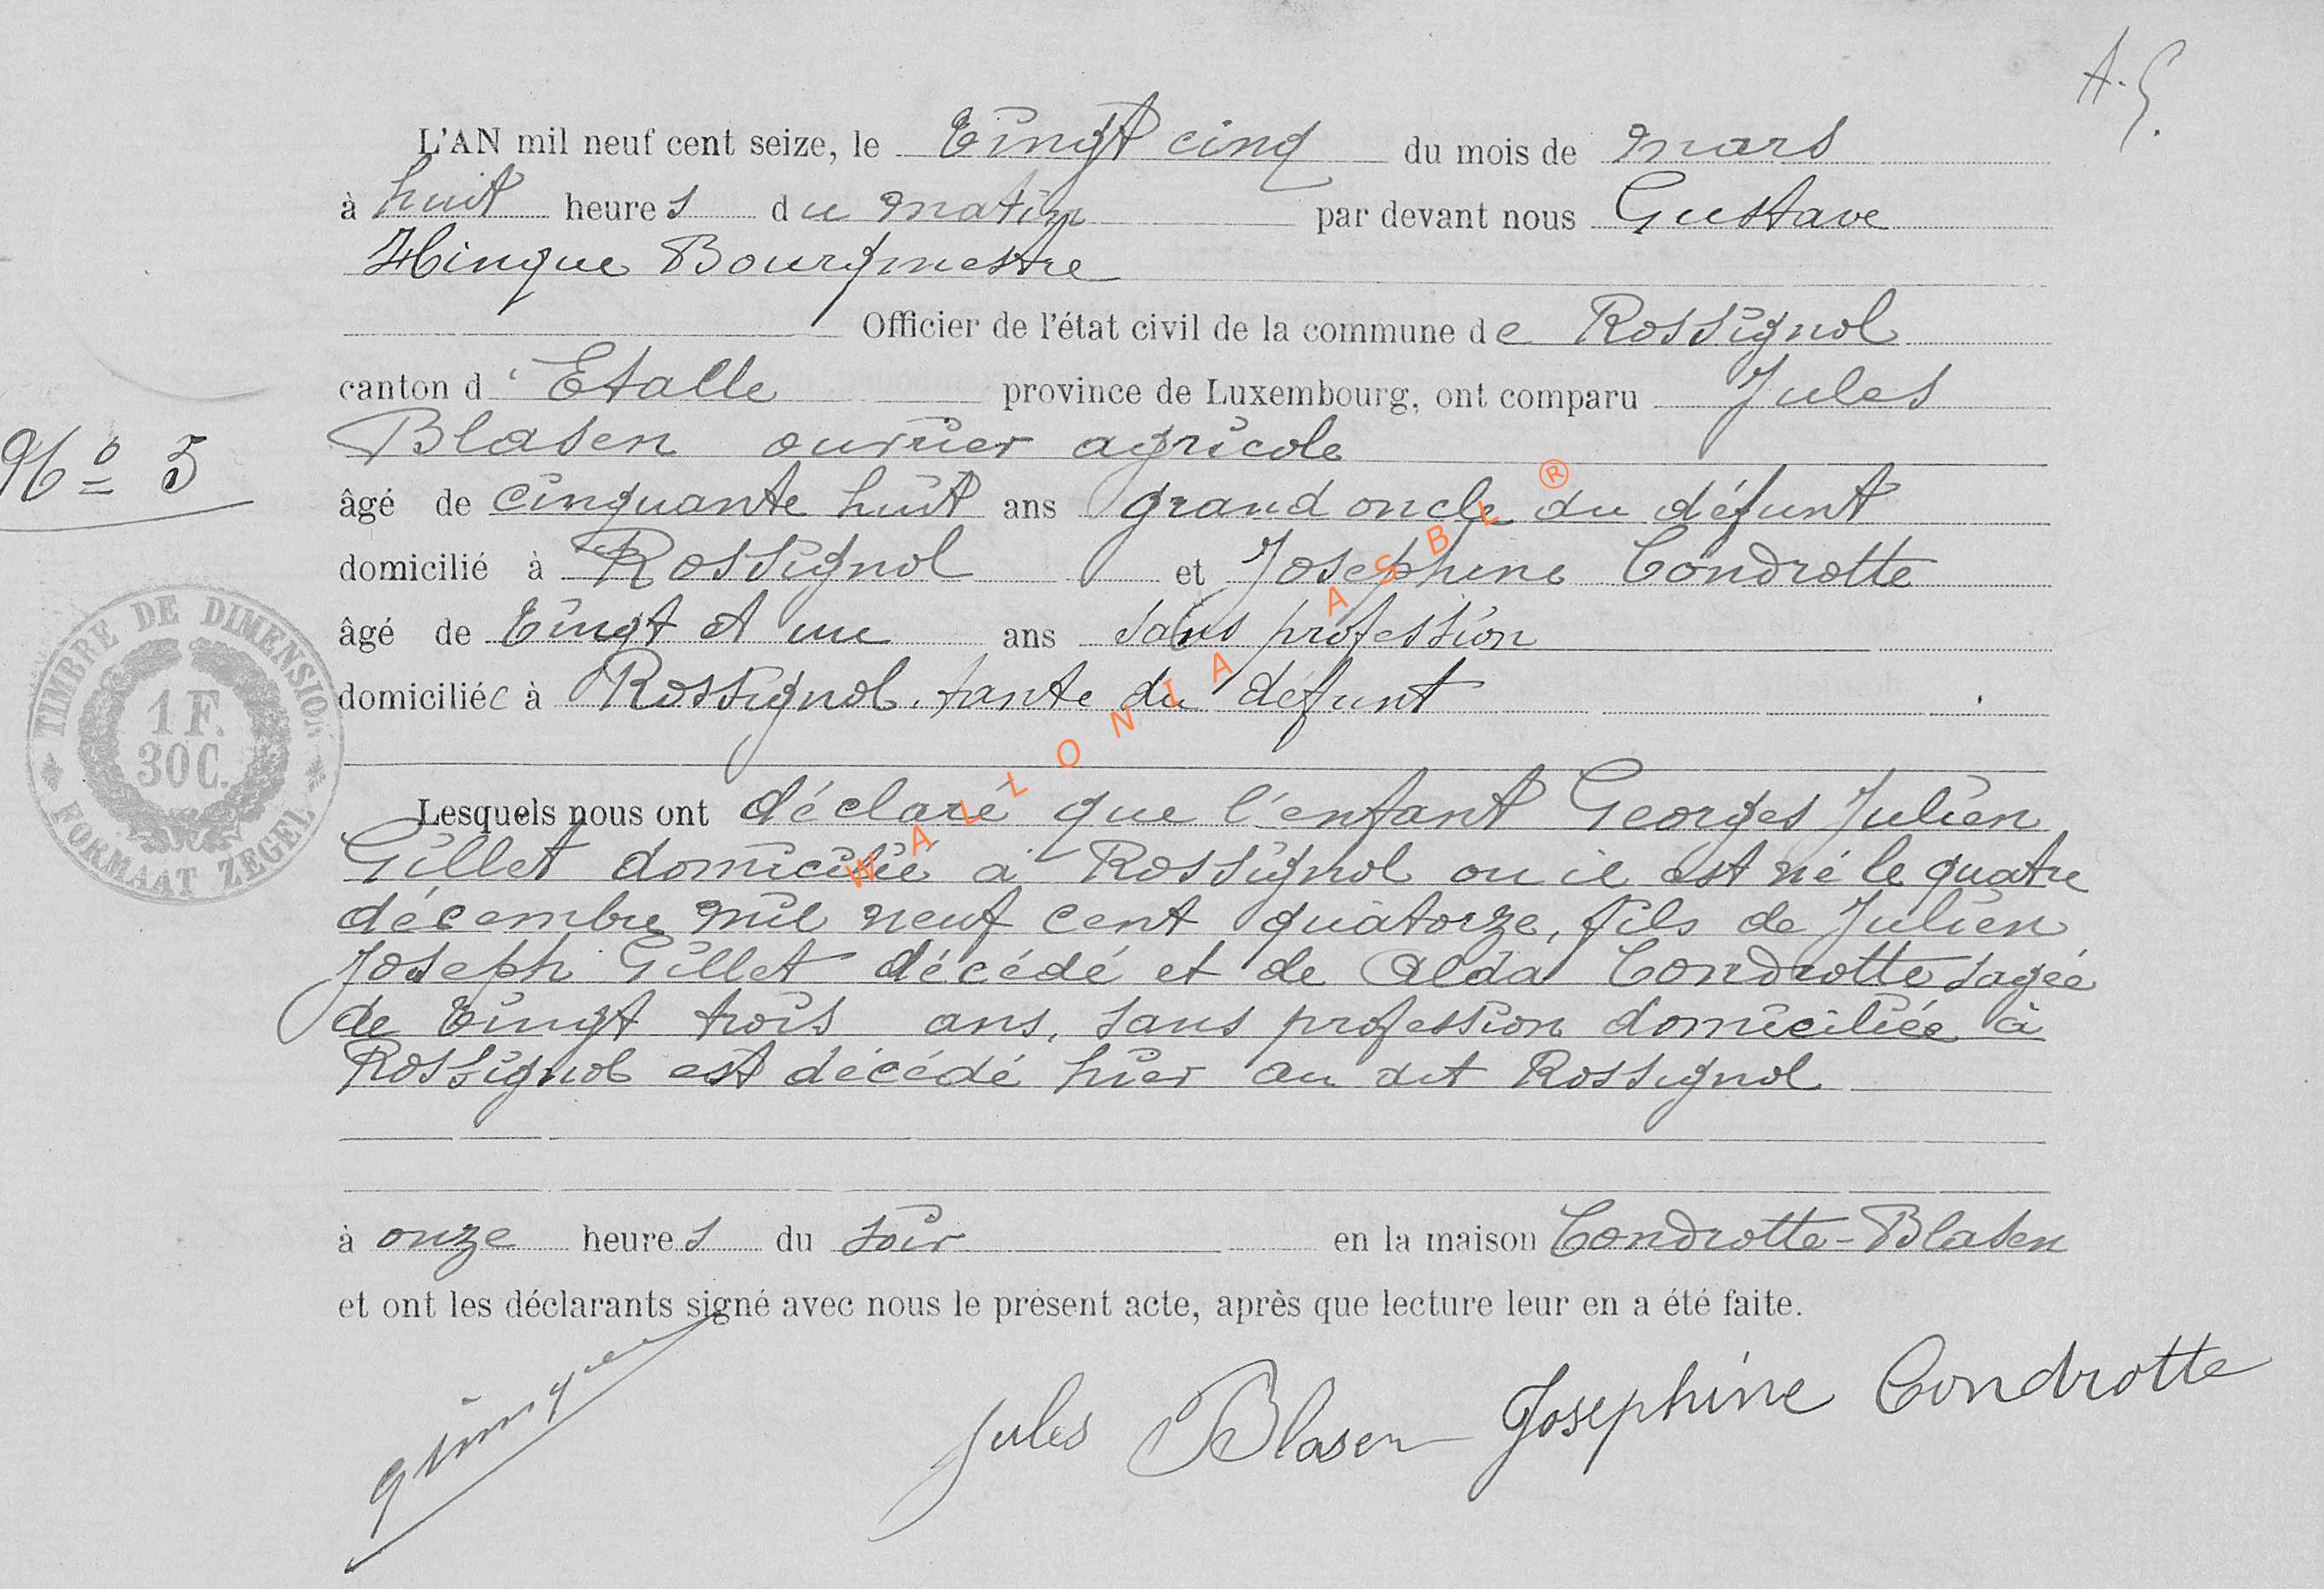 A. G.
L'AN mil neuf cent seize, le Vingt cinq du mois de mars
à huit heures du matin par devant nous Gustave
Hinque Bourgmestre
Officier de l'état civil de la commune de Rossignol
canton d'Etalle province de Luxembourg, ont comparu Jules
Blasen ouvrier agricole
N° 5
âgé de cinquante huit ans grand oncle du défunt
domicilié à Rossignol et Josephine Condrotte
âgé de Vingt et un ans sans profession
domiciliée à Rossignol. tante du défunt
TIMBRE DE DIMENSION
1 F.
30 C.
FORMAAT ZEGEL
WALLONIA ASBL ®
Lesquels nous ont déclaré que l'enfant Georges Julien
Gillet domicilié à Rossignol ou il est né le quatre
décembre mil neuf cent quatorze, fils de Julien
Joseph Gillet décédé et de Alda Condrotte agée
de Vingt trois ans, sans profession domiciliée à
Rossignol est décédé hier au dit Rossignol
à onze heures du soir en la maison Condrotte-Blasen
et ont les déclarants signé avec nous le présent acte, après que lecture leur en a été faite.
Jules Blasen Josephine Condrotte